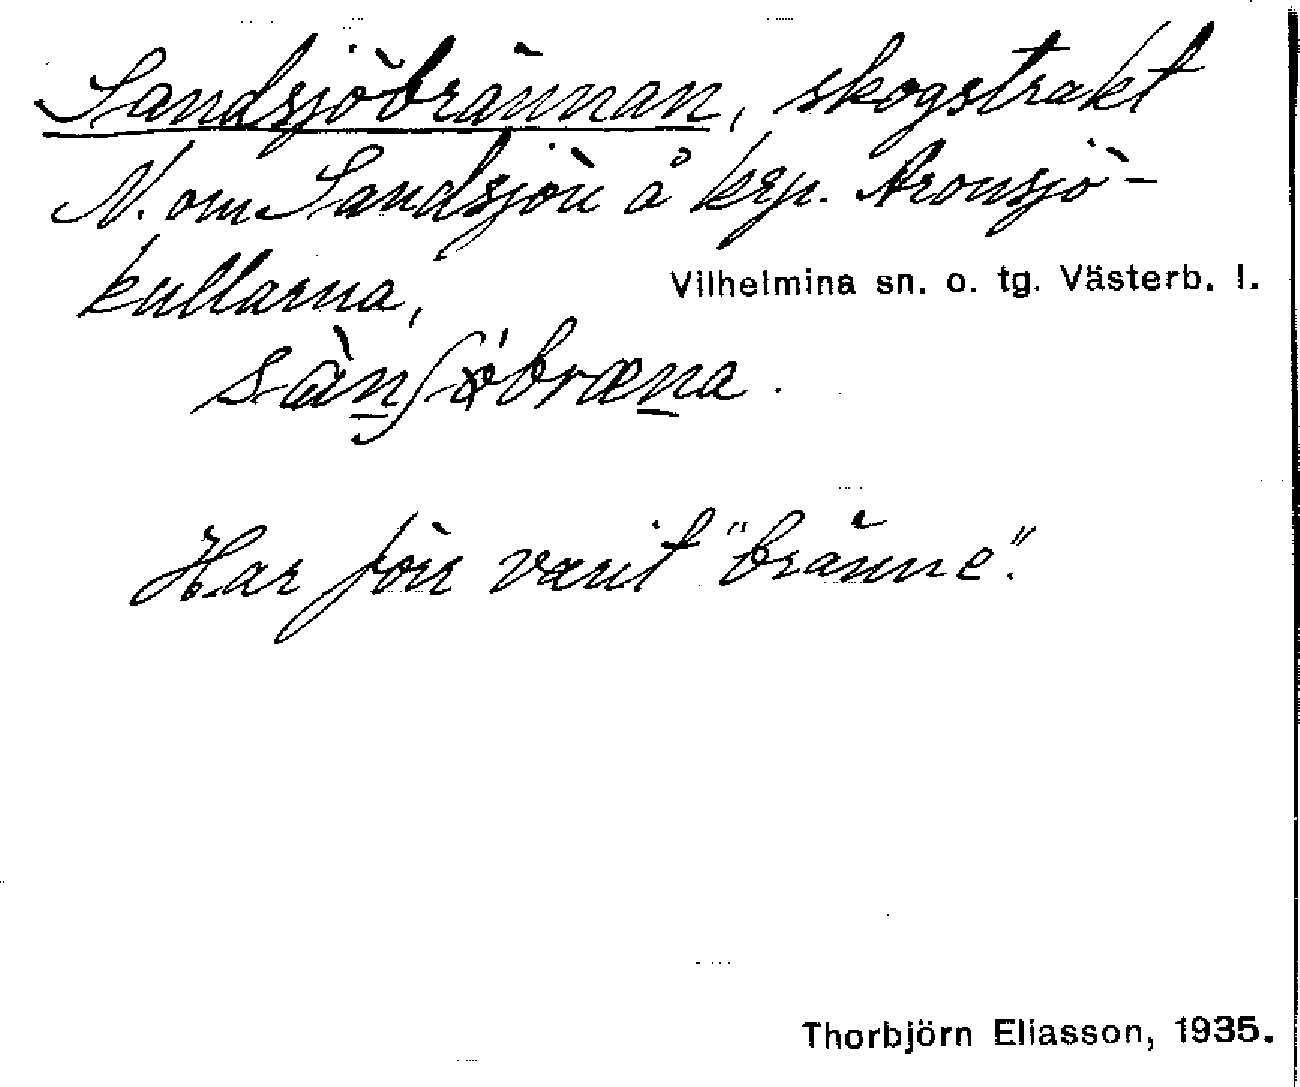 Sandsjöbrännan, skogstrakt
N. om Sandsjön å krp. Aronsjö-
kullarna,
Vilhelmina sn. o. tg. Västerb. l.
Har förr varit "bränne".
Thorbjörn Eliasson, 1935.